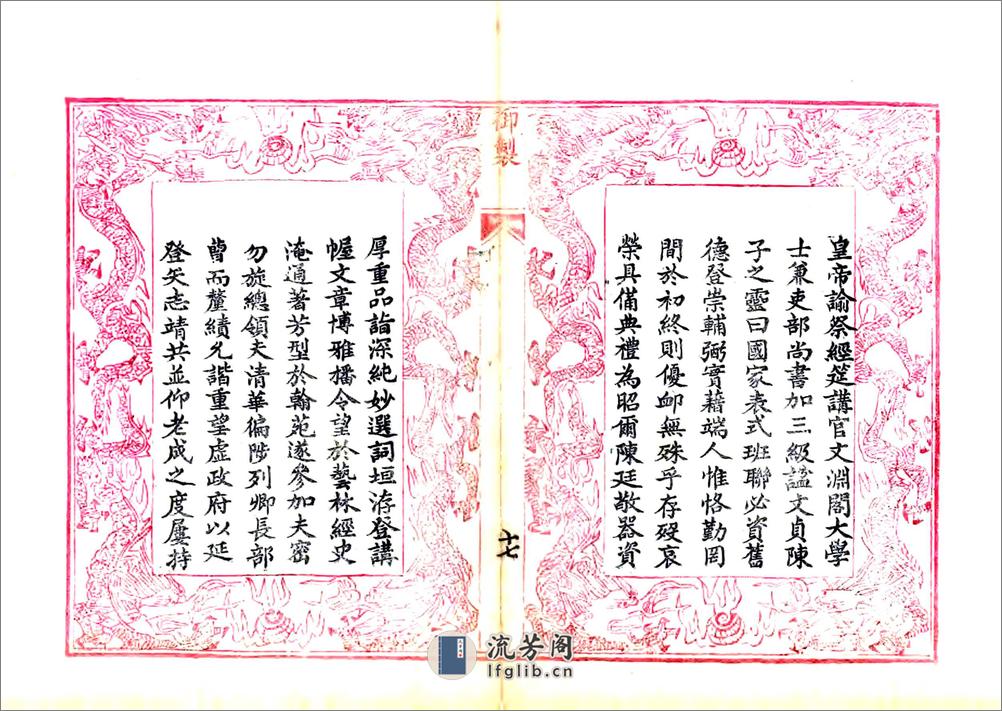 皇帝諭祭經筵講官文淵閣大學
士兼吏部尚書加三級諡文貞陳
子之靈曰國家表式班聯必資舊
德登崇輔弼實藉端人惟恪勤罔
間於初終則優卹無殊乎存歿哀
榮具備典禮為昭爾陳廷敬器資
御製
十七
厚重品詣深純妙選詞垣洊登講
幄文章博雅播令望於藝林經史
淹通著芳型於翰苑遂參加夫密
勿旋總領夫清華徧陟列卿長部
曹而釐績允諧重望虛政府以延
登矢志靖共並仰老成之度屢持
流芳阁
lfglib.cn